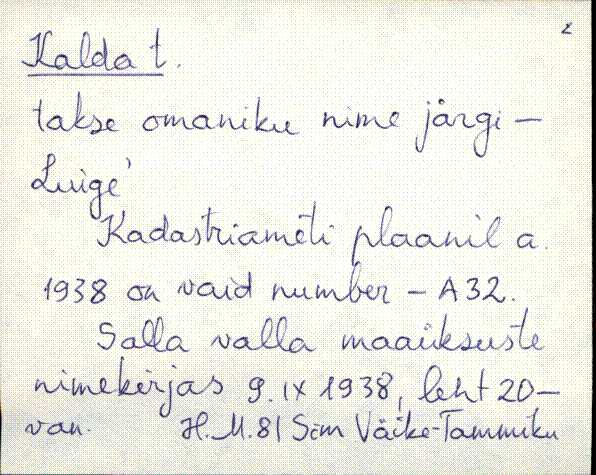 2
Kalda t.
takse omaniku nime järgi –
Luige'
Kadastriameti plaanil a.
1938 on vaid number – A 32.
Salla valla maaüksuste
nimekirjas 9. IX 1938, leht 20 –
van. H. M. 81 Sim Väike-Tammiku